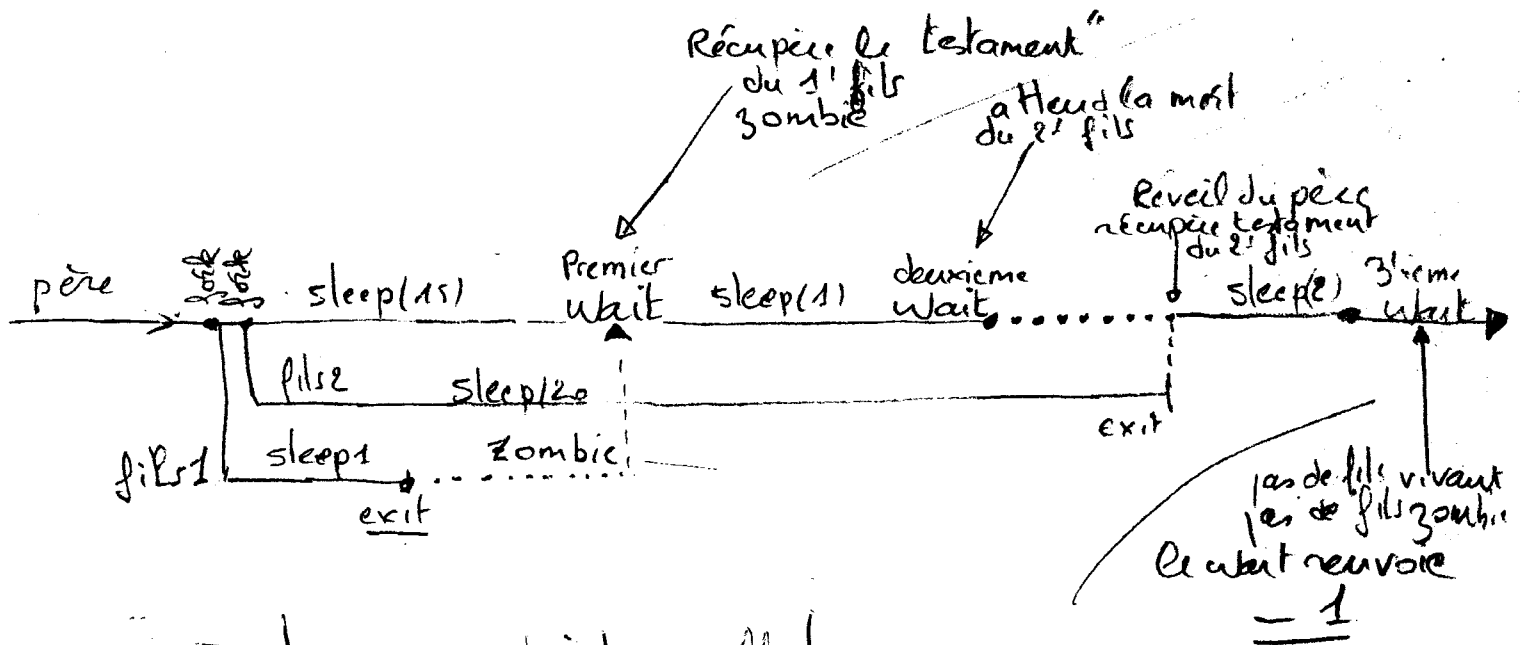 Récupère le testament"
du 1' fils
zombie
attend la mort
du 2' fils
Reveil du père
récupère testament
du 2' fils
père
fork
fork
sleep(15)
Premier
Wait
sleep(1)
deuxieme
Wait
sleep(2)
3'ieme
wait
fils2
sleep(20
exit
fils1
sleep1
zombie
exit
pas de fils vivant
pas de fils zombie
le wait renvoie
- 1